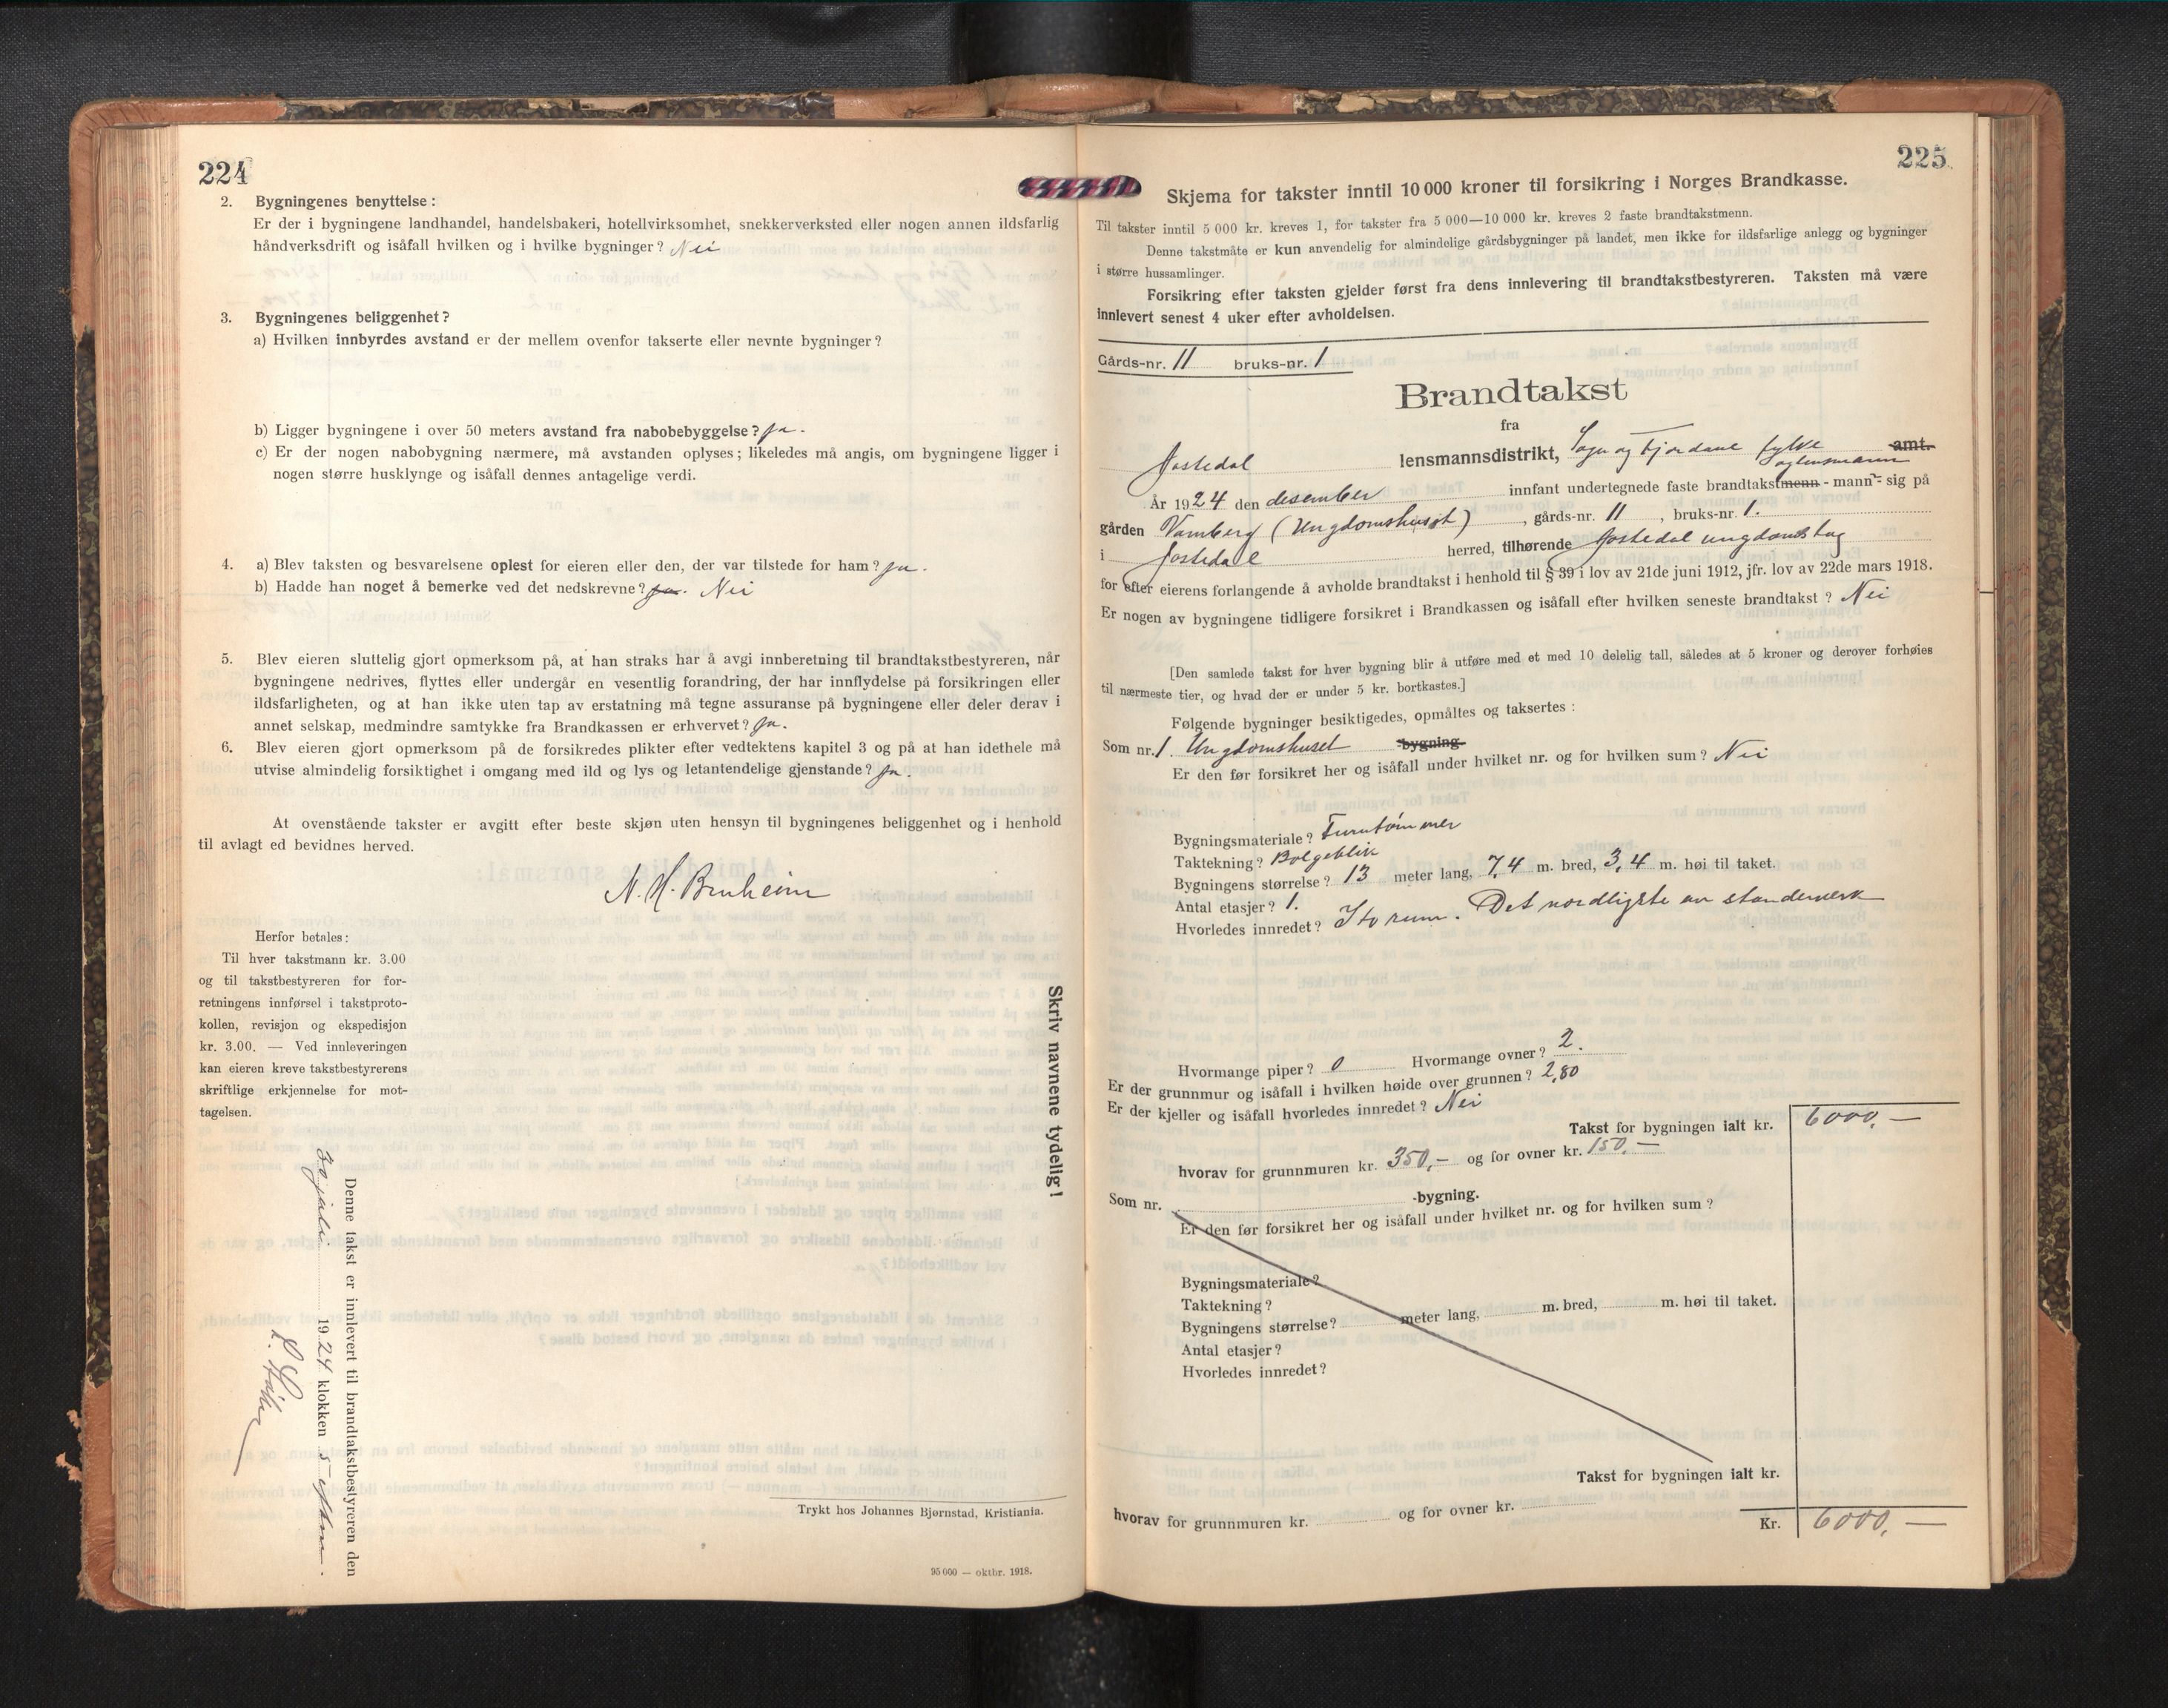 224
2. Bygningenes benyttelse :
Er der i bygningene landhandel, handelsbakeri, hotellvirksomhet, snekkerverksted eller nogen annen ildsfarlig
håndverksdrift og isåfall hvilken og i hvilke bygninger? Nei
3. Bygningenes beliggenhet?
a) Hvilken innbyrdes avstand er der mellem ovenfor takserte eller nevnte bygninger?
b) Ligger bygningene i over 50 meters avstand fra nabobebyggelse? Ja.
c) Er der nogen nabobygning nærmere, må avstanden oplyses; likeledes må angis, om bygningene ligger i
nogen større husklynge og isåfall dennes antagelige verdi.
4. a) Blev taksten og besvarelsene oplest for eieren eller den, der var tilstede for ham? Ja.
b) Hadde han noget å bemerke ved det nedskrevne? Ja. Nei
5. Blev eieren sluttelig gjort opmerksom på, at han straks har å avgi innberetning til brandtakstbestyreren, når
bygningene nedrives, flyttes eller undergår en vesentlig forandring, der har innflydelse på forsikringen eller
ildsfarligheten, og at han ikke uten tap av erstatning må tegne assuranse på bygningene eller deler derav i
annet selskap, medmindre samtykke fra Brandkassen er erhvervet? Ja.
6. Blev eieren gjort opmerksom på de forsikredes plikter efter vedtektens kapitel 3 og på at han idethele må
utvise almindelig forsiktighet i omgang med ild og lys og letantendelige gjenstande? Ja.
At ovenstående takster er avgitt efter beste skjøn uten hensyn til bygningenes beliggenhet og i henhold
til avlagt ed bevidnes herved.
N. H. Bruheim
Herfor betales:
Til hver takstmann kr. 3.00
og til takstbestyreren for for-
retningens innførsel i takstproto-
kollen, revisjon og ekspedisjon
kr. 3.00. — Ved innleveringen
kan eieren kreve takstbestyrerens
skriftlige erkjennelse for mot-
tagelsen.
Skriv navnene tydelig!
Denne takst er innlevert til brandtakstbestyreren den
30 juli 1924 klokken 5 eftm.
Trykt hos Johannes Bjørnstad, Kristiania.
95 000 — oktbr. 1918.
225
Skjema for takster inntil 10 000 kroner til forsikring i Norges Brandkasse.
Til takster inntil 5 000 kr. kreves 1, for takster fra 5 000—10 000 kr. kreves 2 faste brandtakstmenn.
Denne takstmåte er kun anvendelig for almindelige gårdsbygninger på landet, men ikke for ildsfarlige anlegg og bygninger
i større hussamlinger.
Forsikring efter taksten gjelder først fra dens innlevering til brandtakstbestyreren. Taksten må være
innlevert senest 4 uker efter avholdelsen.
Gårds-nr. 11 bruks-nr. 1
Brandtakst
fra
Jostedal lensmannsdistrikt, Sogn og Fjordane fylke amt.
og lensmann
År 1924 den desember innfant undertegnede faste brandtakstmenn - mann - sig på
gården Vamberg (Ungdomshuset), gårds-nr. 11, bruks-nr. 1.
i Jostedal herred, tilhørende Jostedal ungdomslag
for efter eierens forlangende å avholde brandtakst i henhold til § 39 i lov av 21de juni 1912, jfr. lov av 22de mars 1918.
Er nogen av bygningene tidligere forsikret i Brandkassen og isåfall efter hvilken seneste brandtakst? Nei
[Den samlede takst for hver bygning blir å utføre med et med 10 delelig tall, således at 5 kroner og derover forhøies
til nærmeste tier, og hvad der er under 5 kr. bortkastes.]
Følgende bygninger besiktigedes, opmåltes og taksertes :
Som nr. 1 Ungdomshuset -bygning.
Er den før forsikret her og isåfall under hvilket nr. og for hvilken sum? Nei
Bygningsmateriale? Furutømmer
Taktekning? Bølgeblik
Bygningens størrelse? 13 meter lang, 7,4 m. bred, 3,4 m. høi til taket.
Antal etasjer? 1.
Hvorledes innredet? I to rum. Det nordligste av standerverk
Hvormange piper? 0 Hvormange ovner? 2.
Er der grunnmur og isåfall i hvilken høide over grunnen? 2,80
Er der kjeller og isåfall hvorledes innredet? Nei
Takst for bygningen ialt kr. 6000,—
hvorav for grunnmuren kr. 350,— og for ovner kr. 150,—
Som nr. -bygning.
Er den før forsikret her og isåfall under hvilket nr. og for hvilken sum?
Bygningsmateriale?
Taktekning?
Bygningens størrelse? meter lang, m. bred, m. høi til taket.
Antal etasjer?
Hvorledes innredet?
Takst for bygningen ialt kr.
hvorav for grunnmuren kr. og for ovner kr.
Kr. 6000,—